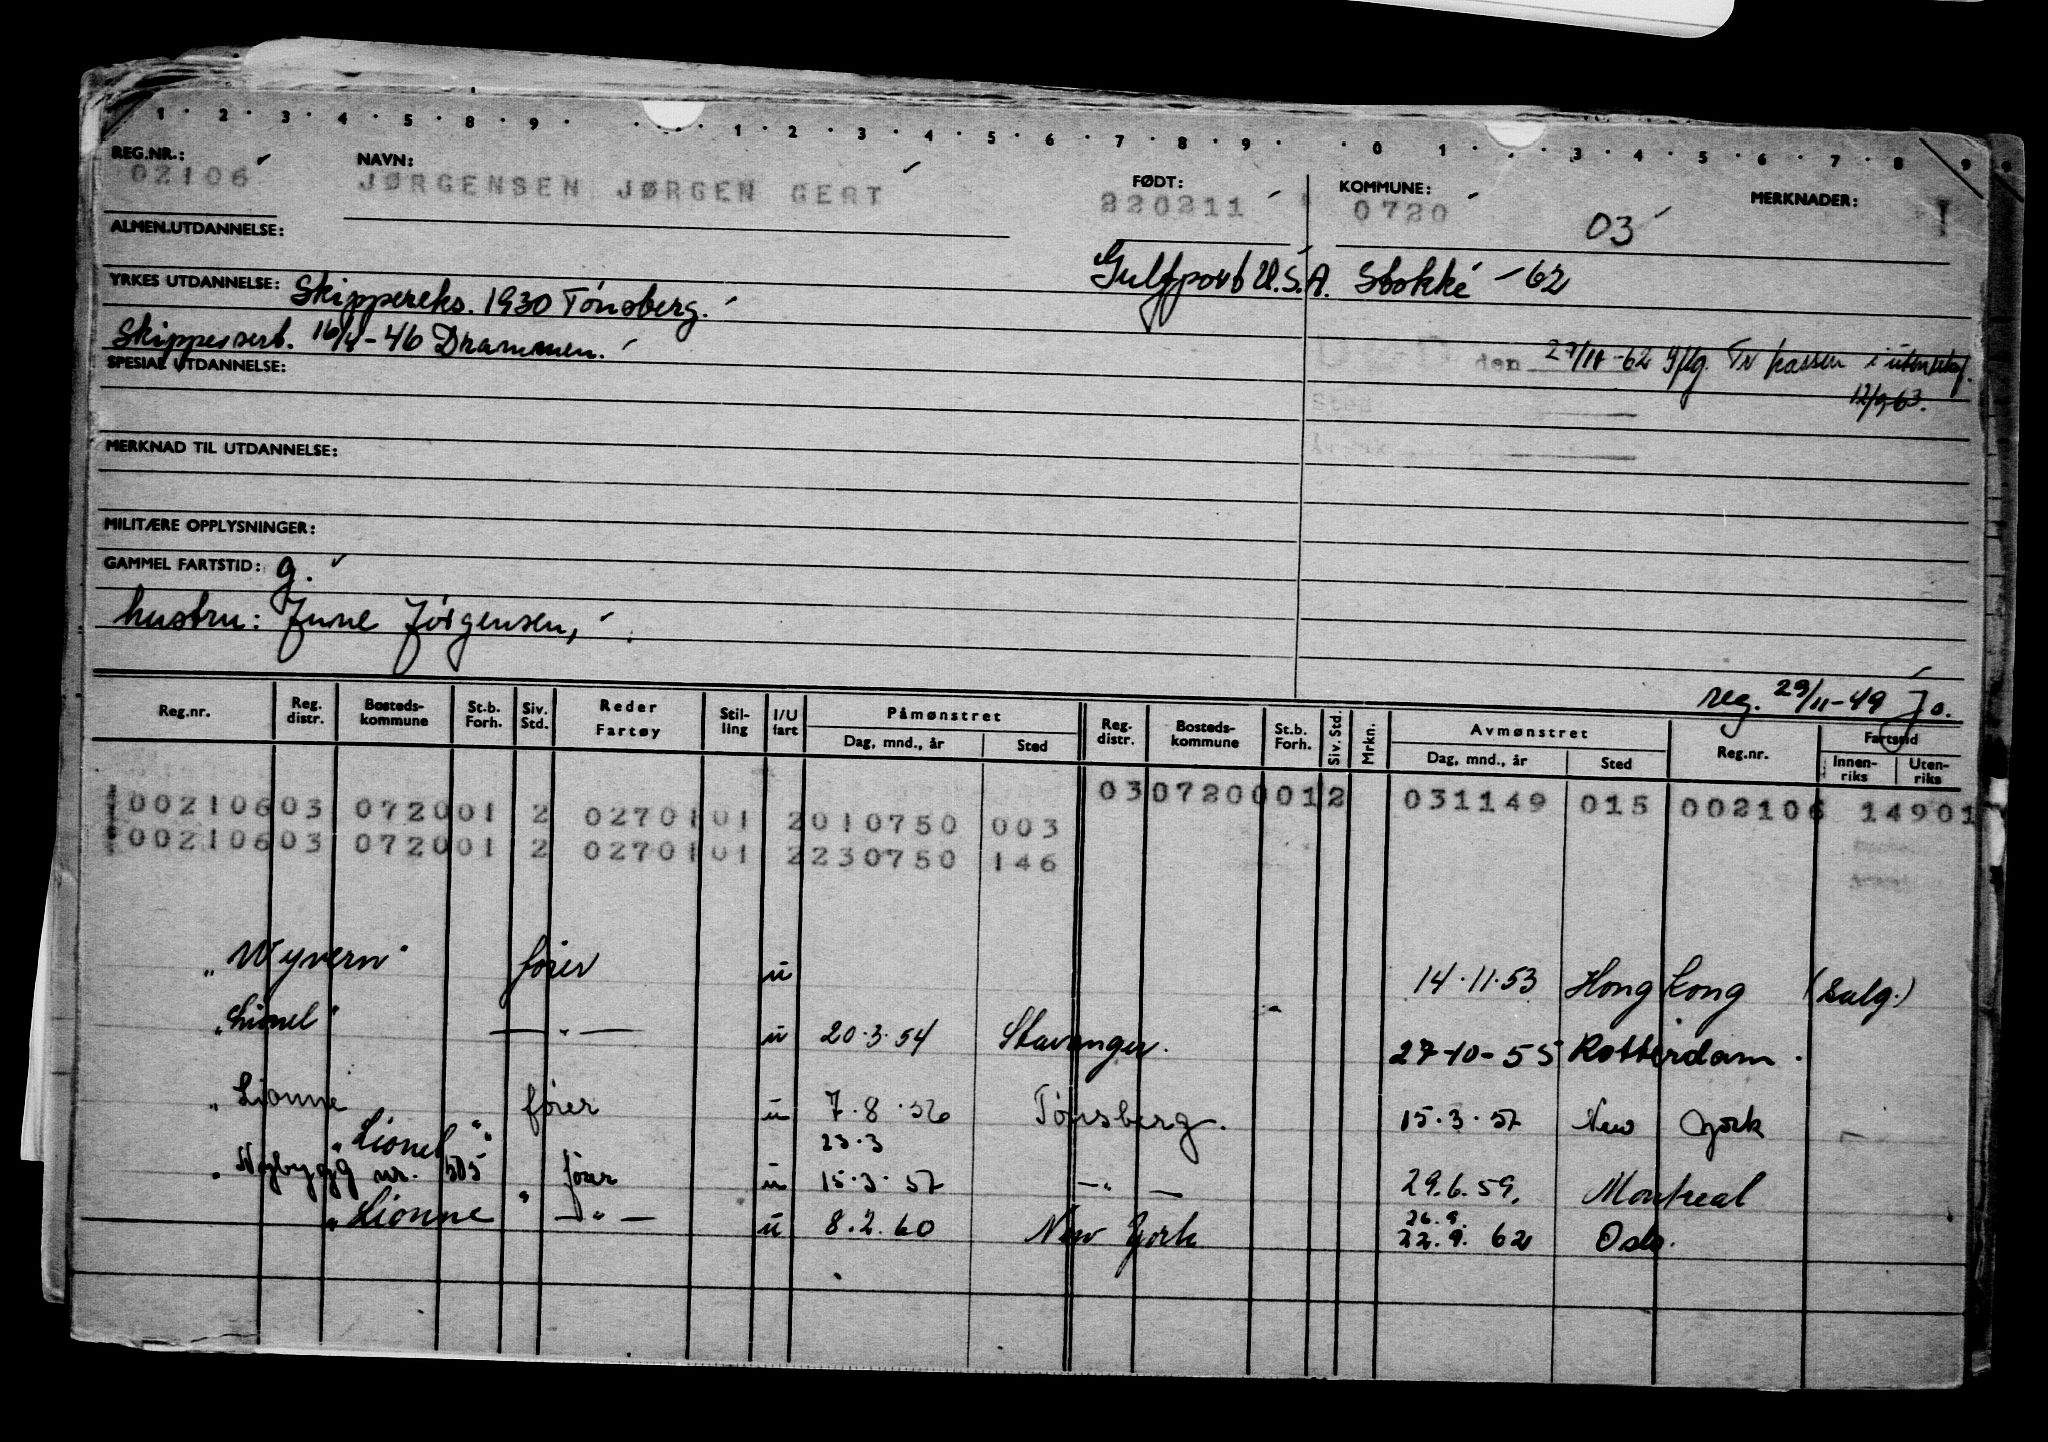 1 · 2 · 3 · 4 · 5 · 8 · 9 · · 1 · 2 · 3 · 4 · 5 · 6 · 7 · 8 · 9 · · 0 · 1 · · 3 · 4 · 5 · 6 · 7 · 8 · 9
REG.NR.: NAVN: FØDT: KOMMUNE: MERKNADER:
02106 JØRGENSEN JØRGEN GERT 220211 0720 03
ALMEN.UTDANNELSE:
Gulfport U.S.A. Stokke -62
YRKES UTDANNELSE: Skippereks. 1930 Tønsberg.
Skippersert. 16/4-46 Drammen.
den 27/11-62 Tr passer i
12/9 63.
SPESIAL UTDANNELSE:
MERKNAD TIL UTDANNELSE:
MILITÆRE OPPLYSNINGER:
GAMMEL FARTSTID: g.
hustru: June Jørgensen,
reg. 29/11-49 Jo.
Reg.nr. Reg. distr. Bosteds-kommune St.b. Forh. Siv. Std. Reder Fartøy Stil-ling I/U fart Påmønstret Dag, mnd., år Sted Reg. distr. Bosteds-kommune St.b. Forh. Siv. Std. Mrkn. Avmønstret Dag, mnd., år Sted Reg.nr. Fartstid Innen-riks Uten-riks
03 0720 001 2 031149 015 002106 14901
002106 03 0720 01 2 0270101 2010750 003
002106 03 0720 01 2 0270101 2230750 146
"Wyvern" fører u 14.11.53 Hong Kong (Salg.)
"Lionel" —"— u 20.3.54 Stavanger. 27-10-55 Rotterdam.
"Lionne" fører u 7.8.56 Tønsberg. 15.3.57 New York
"Lionel" 23.3
"Nybygg nr. 505" fører u 15.3.57 —"— 29.6.59. Montreal
26.9.
"Lionne" —"— u 8.2.60 New York 22.9.62 Oslo.